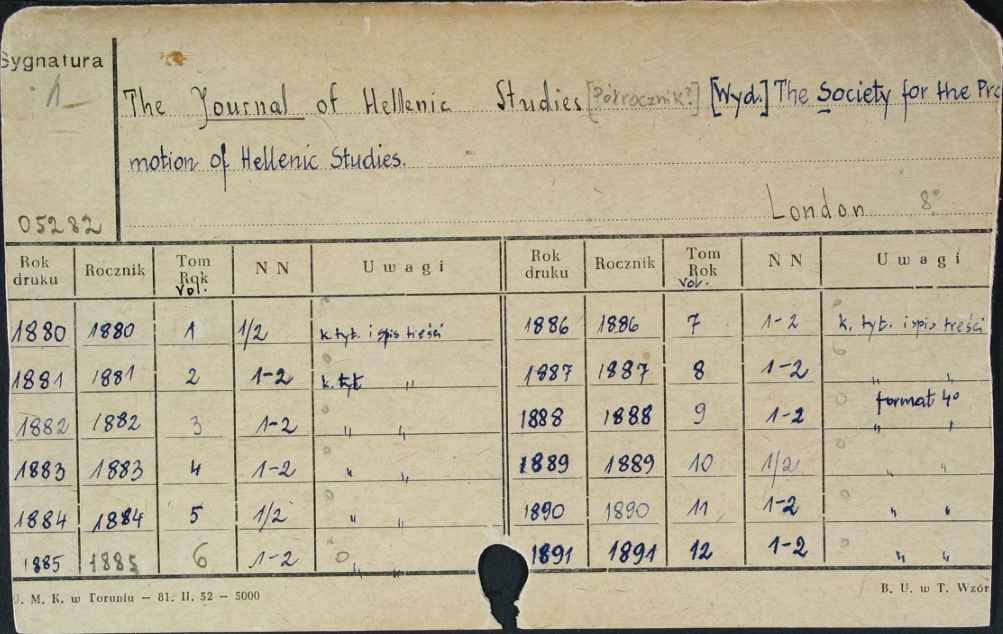 Sygnatura
1
The Journal of Hellenic Studies [Półrocznik?] [Wyd.] The Society for the Pro
motion of Hellenic Studies.
London 8°
05282
Rok druku Rocznik Tom Rok Vol. N N Uwagi Rok druku Rocznik Tom Rok Vol. N N Uwagi
1880 1880 1 1/2 k. tyt. i spis treści 1886 1886 7 1-2 k. tyt. i spis treści
1881 1881 2 1-2 k. tyt. " 1887 1887 8 1-2 " "
1882 1882 3 1-2 " " 1888 1888 9 1-2 format 4° " "
1883 1883 4 1-2 " " 1889 1889 10 1/2 " "
1884 1884 5 1/2 " " 1890 1890 11 1-2 " "
1885 1885 6 1-2 " " 1891 1891 12 1-2 " "
U. M. K. w Toruniu — 81. II. 52 — 5000 B. U. w T. Wzór